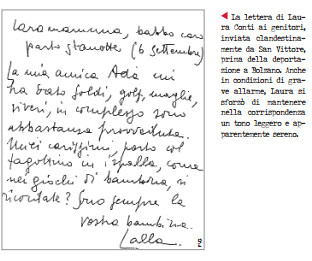 Cara mamma, babbo caro
parto stanotte (6 settembre)
La mia amica Ada mi
ha dato soldi, golf, maglie,
viveri, in complesso sono
abbastanza provveduta.
Miei carissimi, parto col
fagottino in ispalla, come
nei giochi di bambina, vi
ricordate? Sono sempre la
vostra bambina.
Lalla.
La lettera di Lau-
ra Conti ai genitori,
inviata clandestina-
mente da San Vittore,
prima della deporta-
zione a Bolzano. Anche
in condizioni di gra-
ve allarme, Laura si
sforzò di mantenere
nella corrispondenza
un tono leggero e ap-
parentemente sereno.